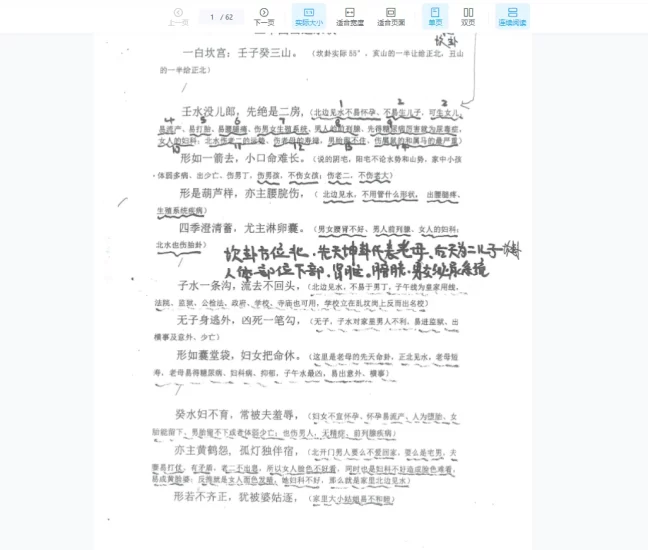 上一页
1 / 62
下一页
实际大小
适合宽度
适合页面
单页
双页
连续阅读
坎卦
一白坎宫：壬子癸三山。（坎卦实际 55°、亥山的一半让给正北，丑山
的一半给正北）
壬水没儿郎，先绝是二房，（北边见水不易怀孕、不易生儿子，可生女儿、
易流产、易打胎、易腰腿痛、伤男女生殖系统、男人前列腺、先得糖尿病厉害就为尿毒症，
女人的妇科；北水伤老二的运势、伤老母的寿缘、男胎留不住、伤属鼠的和属马的最严重）
形如一箭去，小口命难长。（说的阴宅，阳宅不论水势和山势，家中小孩
体弱多病、出少亡、伤男丁，伤男孩，不伤女孩；伤老二，不伤老大）
形是葫芦样，亦主腰脘伤，（北边见水，不用管什么形状，出腰腿疼，
生殖系统疾病）
四季澄清蓄，尤主淋卵囊。（男女腰肾不好、男人前列腺、女人的妇科；
北水也伤胎卦）
坎卦方位北，先天坤卦代表老母、后天为二儿子
人体部位下部、肾脏、膀胱、泌尿系统
子水一条沟，流去不回头，（北边见水，不易于男丁，子午线为皇家用线，
法院、监狱、公检法、政府、学校、寺庙也可用，学校立在乱坟岗上反而出名校）
无子身逃外，凶死一笔勾，（无子，子水对家里男人不利、易进监狱、出
横事及意外、少亡）
形如囊堂袋，妇女把命休。（这里是老母的先天命卦，正北见水，老母短
寿，老母易得糖尿病、妇科病，抑郁，子午水最凶，易出意外、横事）
癸水妇不育，常被夫羞辱，（妇女不宜怀孕、怀孕易流产、人为堕胎、女
胎能留下、男胎留不下或者体弱少亡；也伤男人，无精症，前列腺疾病）
亦主黄鹤怨，孤灯独伴宿，（北开门男人要么不爱回家，要么是宅男，夫
妻易打仗，有矛盾，老二不出意，所以女人脸色不好看，同时也是妇科不好造成脸色难看，
易成黄脸婆；反馈就是女人面色发暗，她妇科不好，那么就是家里北边见水）
形若不齐正，犹被婆姑逐，（家里大小姑姐易不和睦）